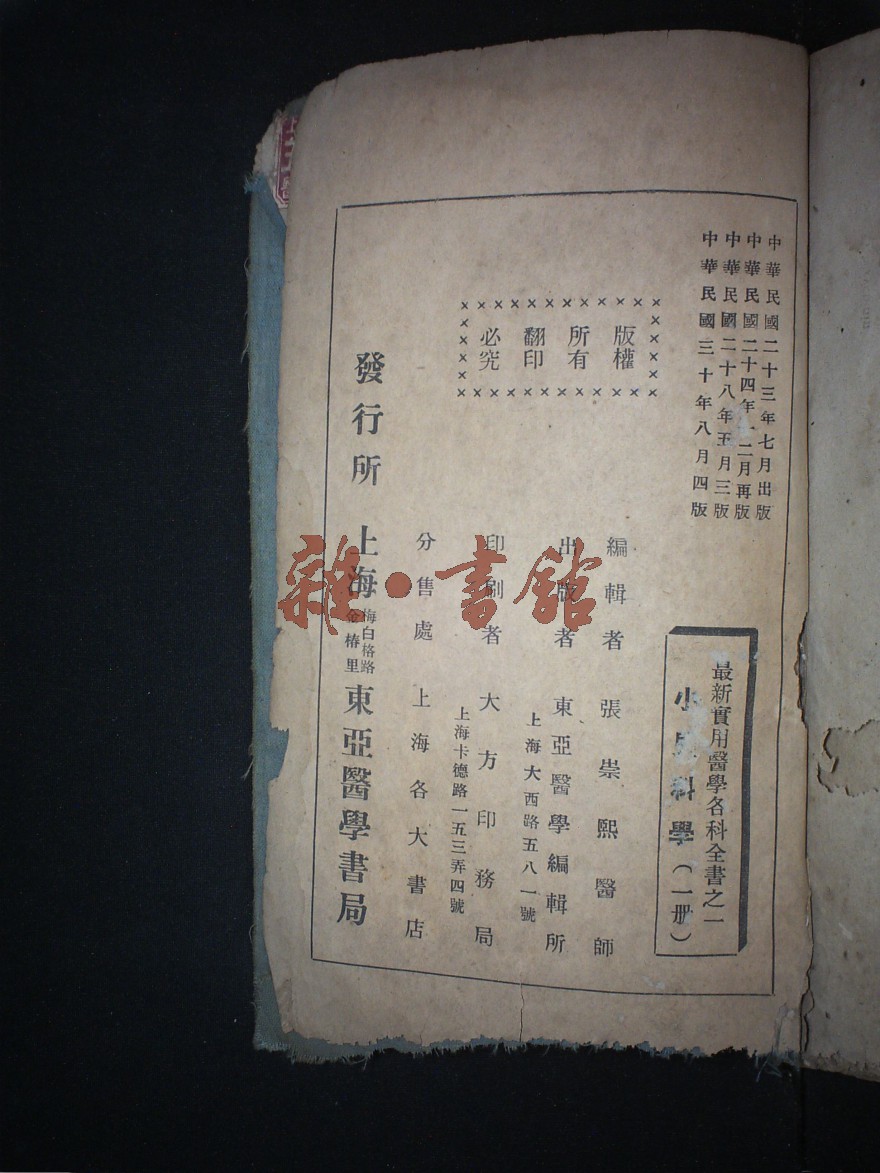 中華民國二十三年七月出版
中華民國二十四年十二月再版
中華民國二十八年五月三版
中華民國三十年八月四版
版權
所有
翻印
必究
最新實用醫學各科全書之一
小兒科學(一册)
編輯者 張崇熙醫師
出版者 東亞醫學編輯所
上海大西路五八一號
印刷者 大方印務局
上海卡德路一五三弄四號
分售處 上海各大書店
發行所 上海 梅白格路
金椿里 東亞醫學書局
雜·書館